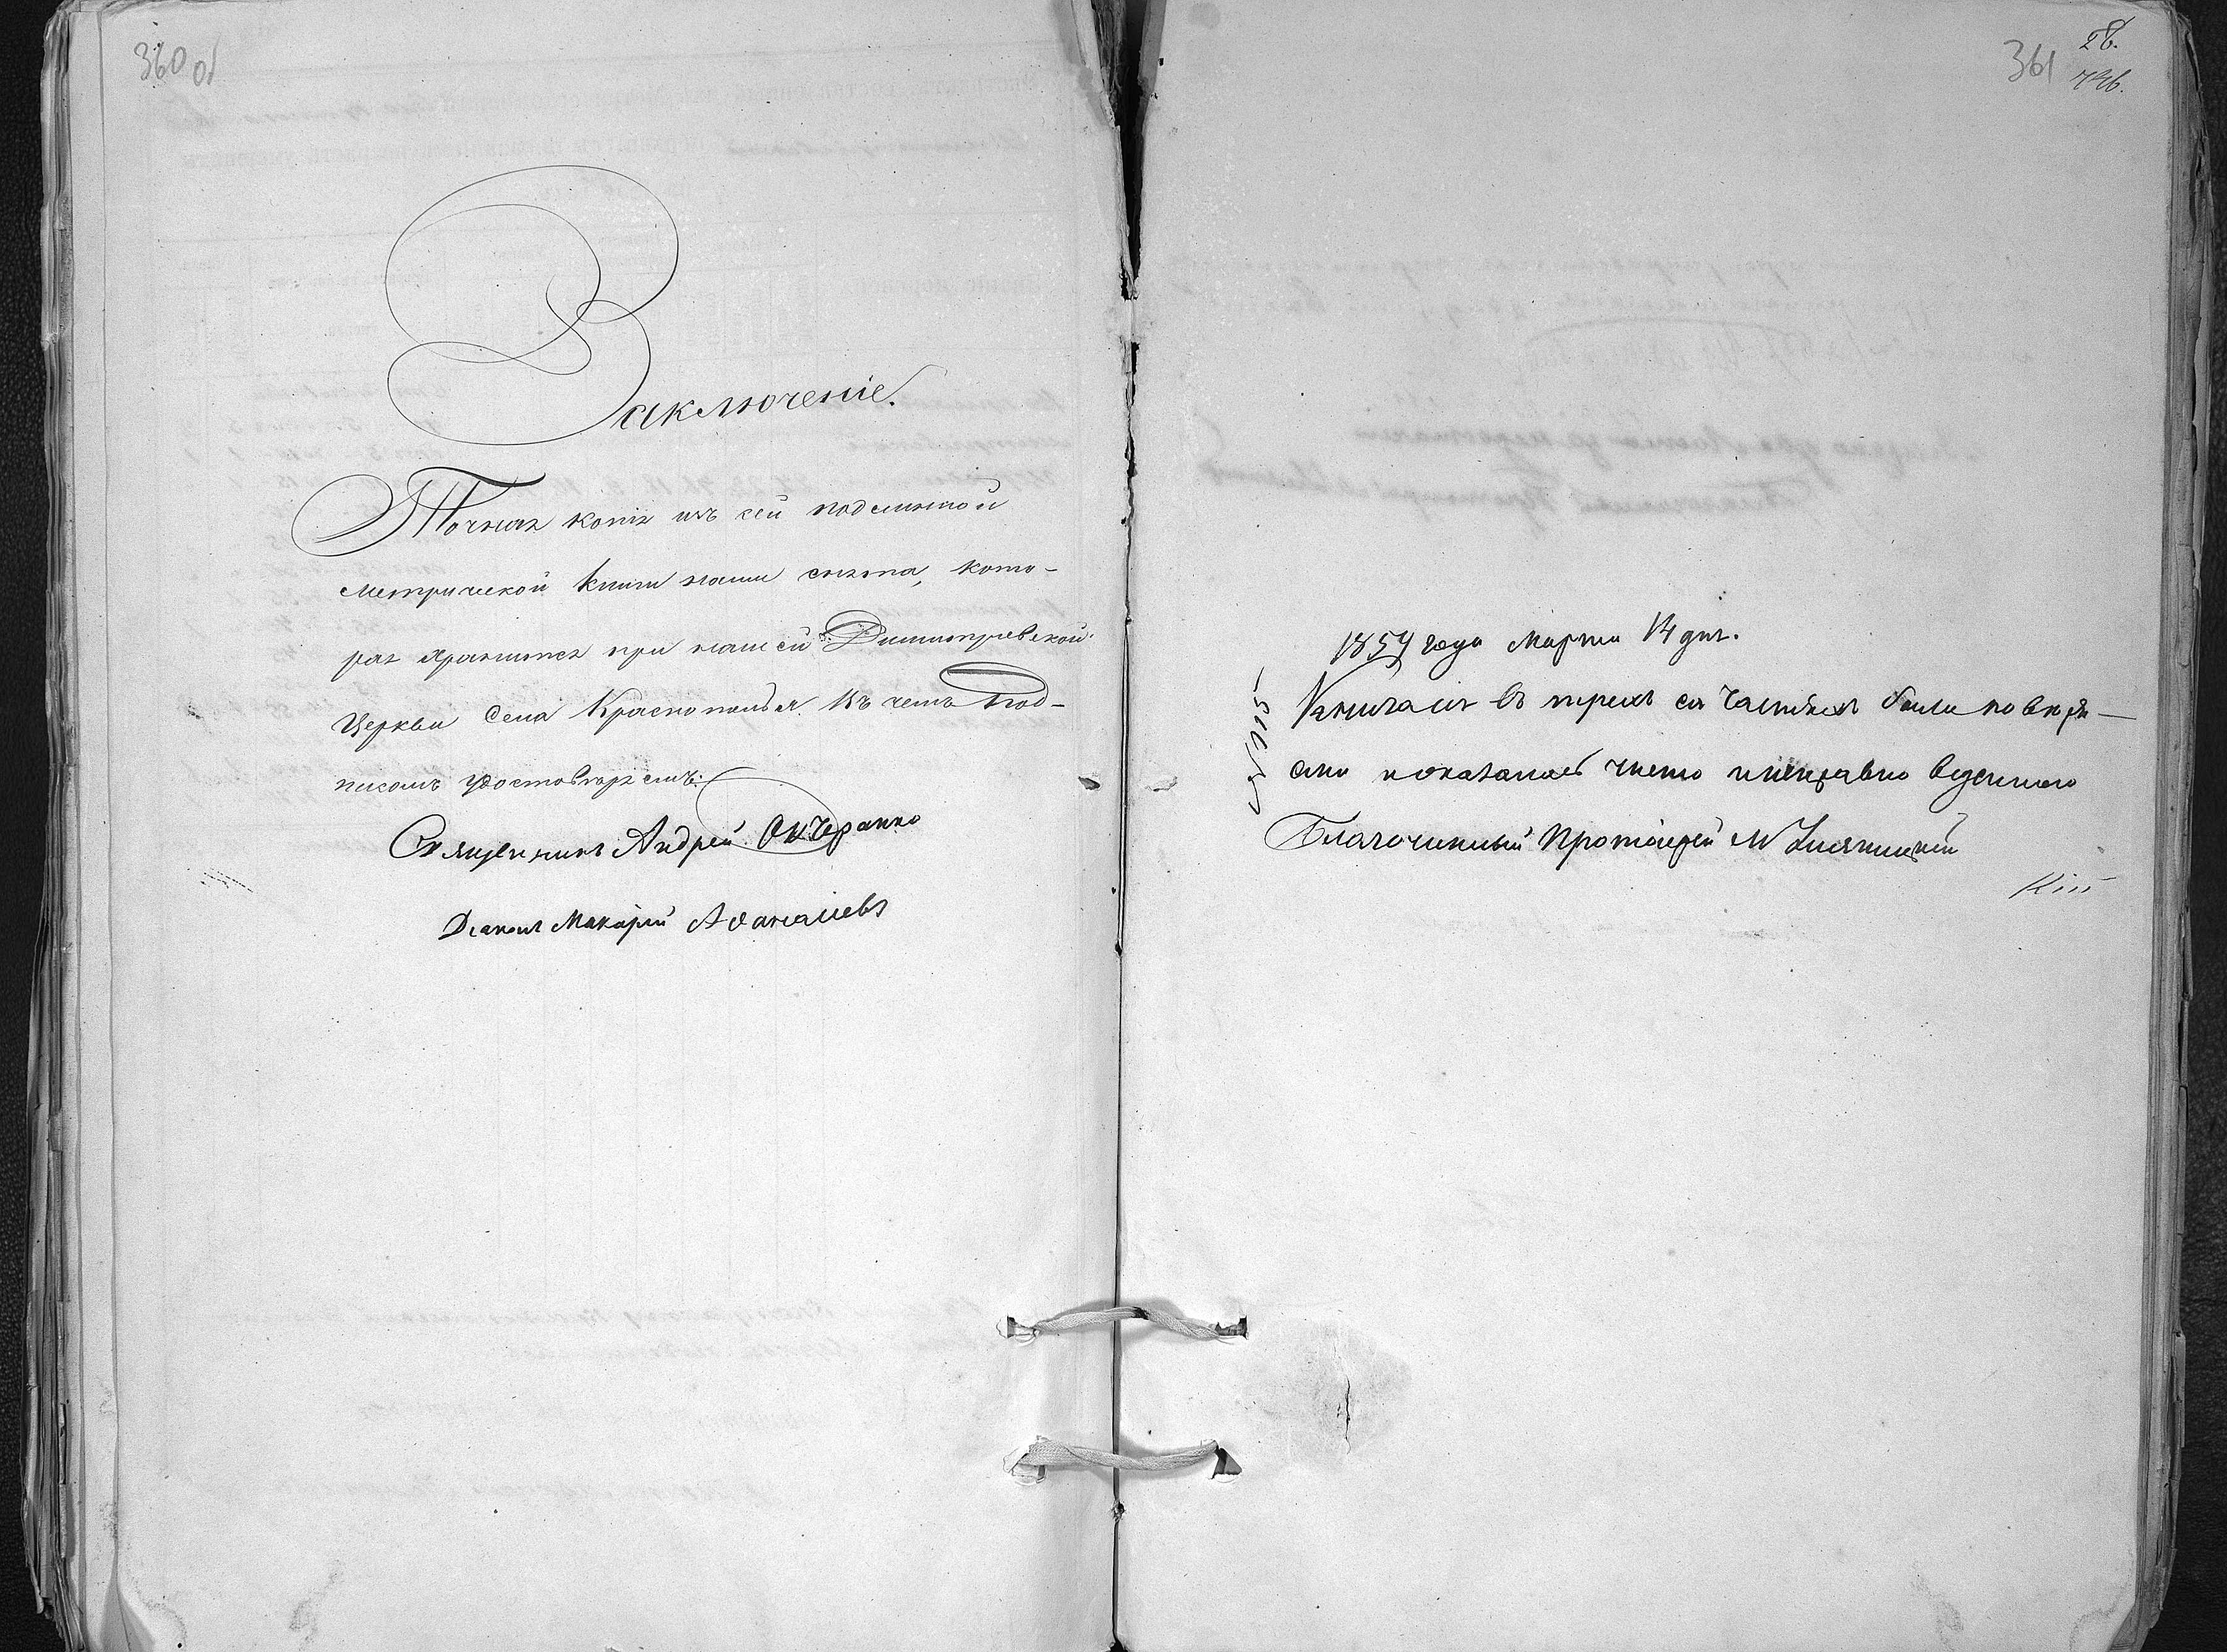 360 об
Заключеніе.
Точная копія изъ сей подлинной
метрической книги нами снята, кото-
рая хранится при нашей Димитріевской
Церкви Села Краснополья въ чемъ под-
писомъ удостовѣряемъ:
Священникъ Андрей
Діаконъ Макарій Аѳанасіевъ
361
28.
1857 года Марта 14 дня.
Книга сія въ трехъ ея частяхъ была повѣря-
ема и оказалась чисто и исправно веденною
Благочинный Протоіерей М